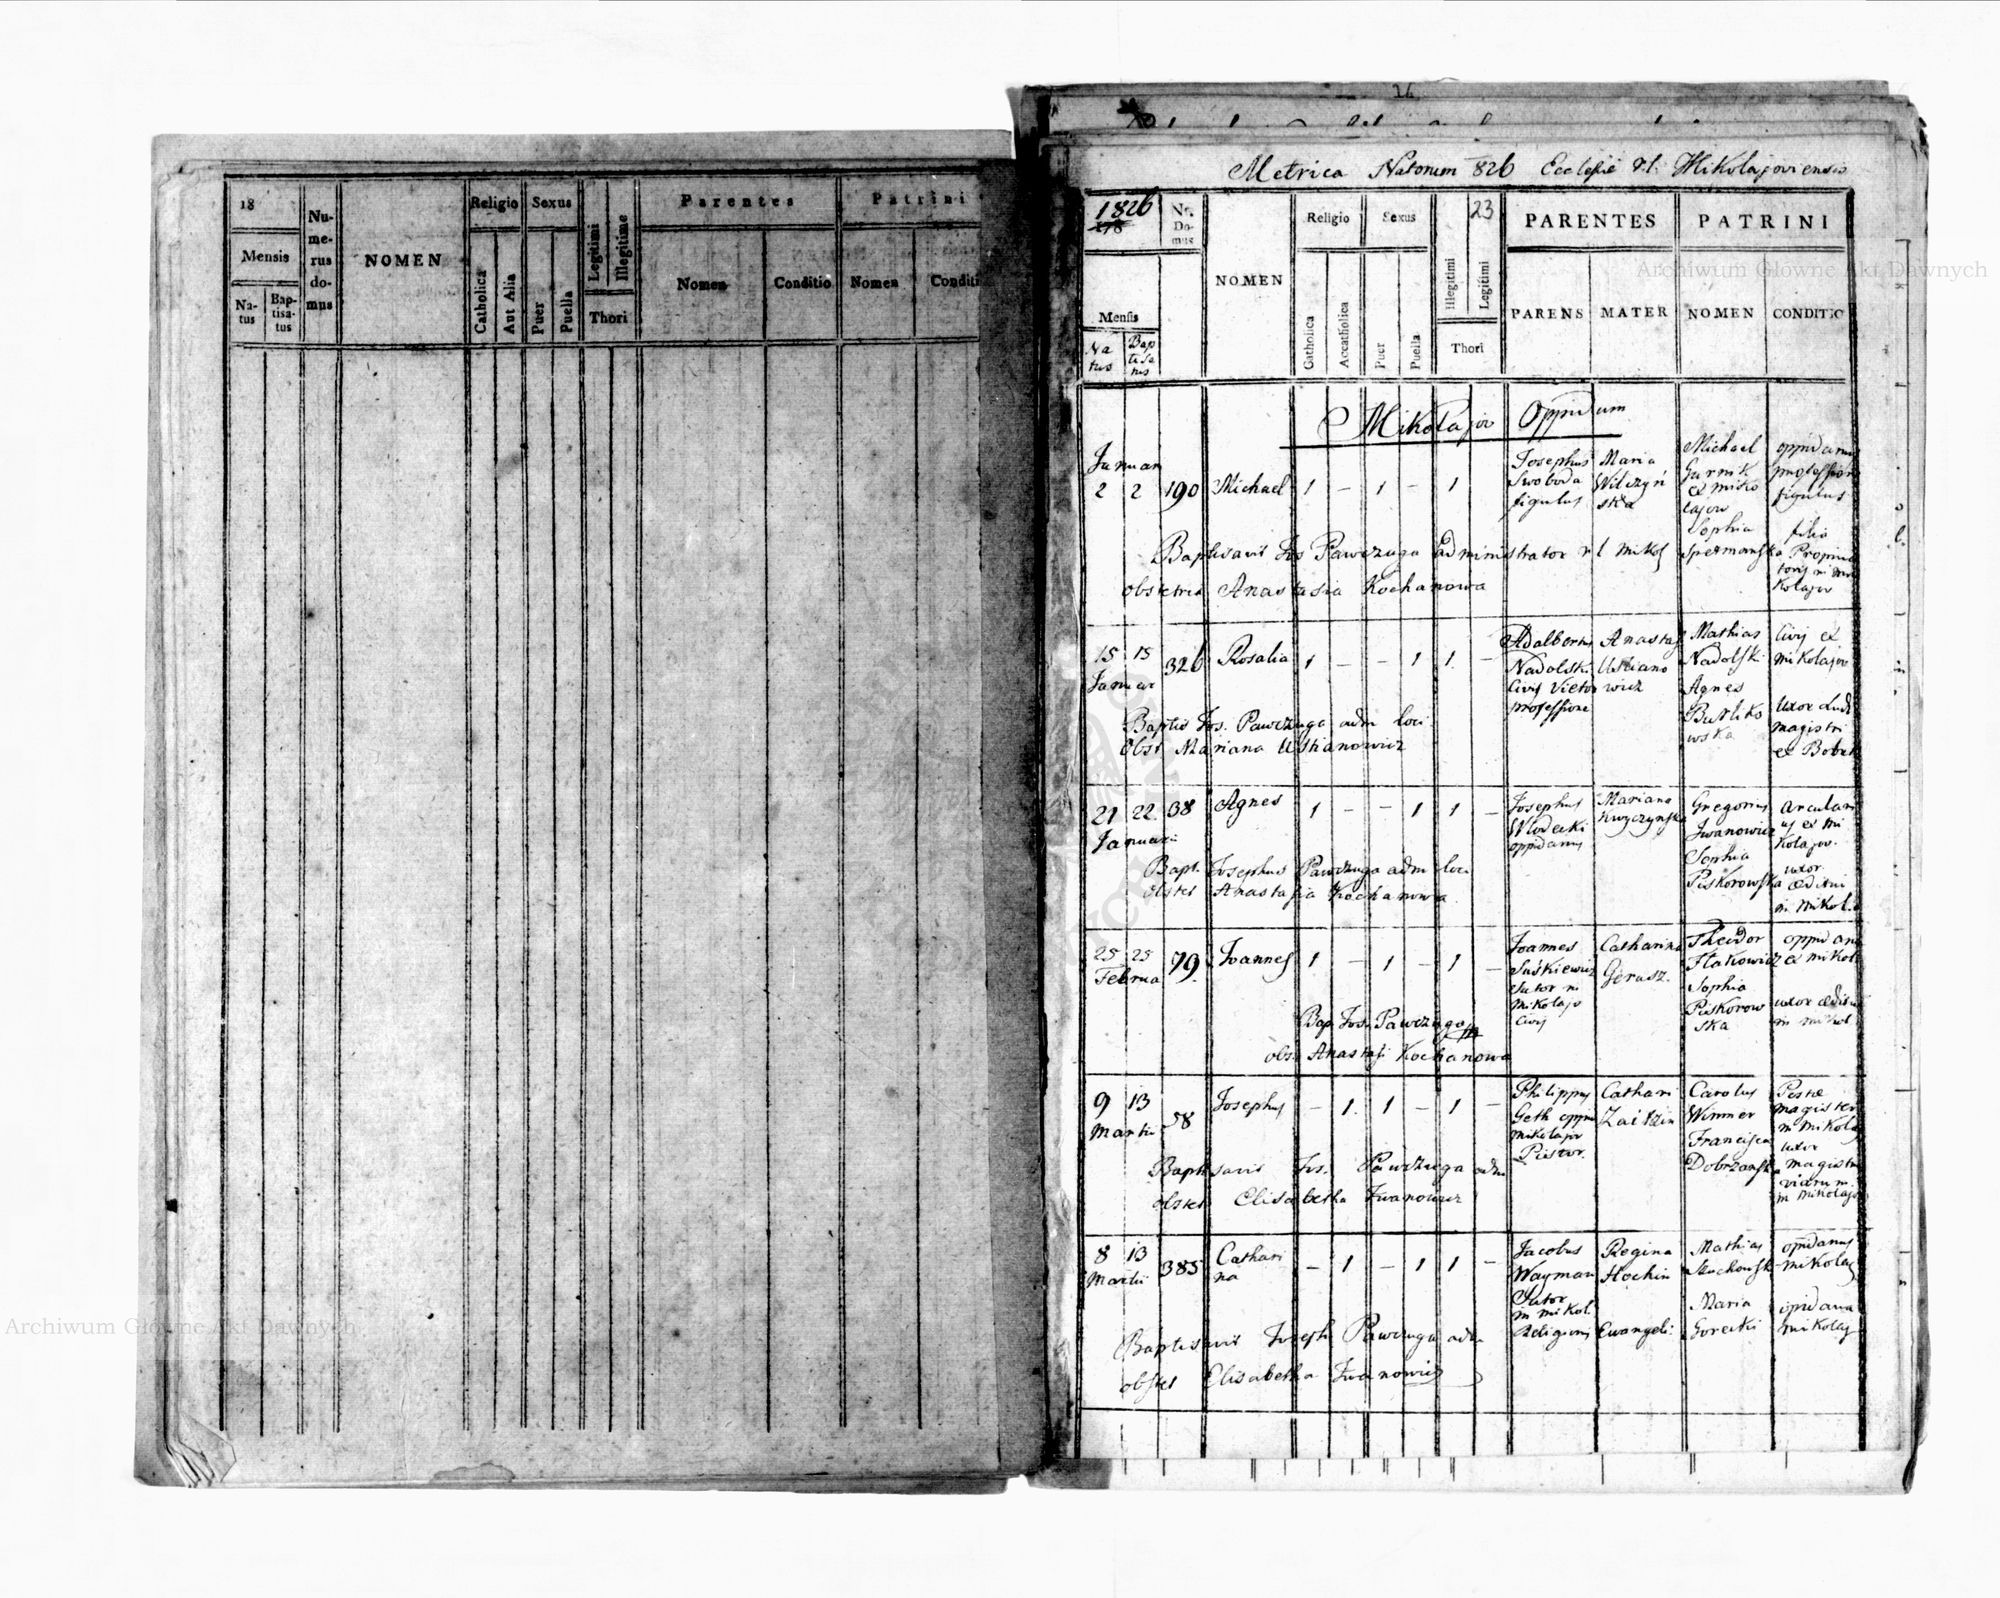 18
Mensis
Na-
tus
Bap-
tisa-
tus
Nu-
me-
rus
do-
mus
NOMEN
Religio
Catholica
Aut Alia
Sexus
Puer
Puella
Legitimi
Illegitime
Thori
Parentes
Nomen
Conditio
Patrini
Nomen
Conditi
16
Metrica Natorum 826 Ecclesie r.l. Mikolajoviensis
1826
178
Nr.
Do-
mus
NOMEN
Religio
Sexus
23
PARENTES
PATRINI
Mensis
Na
tus
Bap
tisa
tus
Catholica
Accatholica
Puer
Puella
Illegitimi
Legitimi
Thori
PARENS
MATER
NOMEN
CONDITIO
Mikolajov Oppidum
Januari
2 2 190 Michael 1 – 1 – 1
Josephus
Swoboda
figulus
Maria
Wilczyń
ska
Michael
Gurnik
ex miko
lajow
Sophia
Spermanska
oppidanus
professione
figulus
filia
Propina
toris in mi
kolajov
Baptisavit Jos Pawczuga administrator r l Mikol
obstetrix Anastasia Kochanowa
15 15 326 Rosalia 1 – – 1 1 –
Januar
Adalbertus
Nadolski
Civis Vietor
professione
Anastas
Ustiano
wicz
Mathias
Nadolski
Agnes
Butko
wska
Civis ex
mikolajov
uxor Ludi
magistri
ex
Baptis Jos. Pawczuga adm loci
Obst Mariana Ustianowicz
21 22 38 Agnes 1 – – 1 1 –
Januarii
Josephus
Wlodecki
oppidanus
Mariana
Gregorius
Iwanowicz
Sophia
Piskorowska
arculari
us ex mi
kolajov.
uxor
aeditui
in mikol.
Bapt. Josephus Pawczuga adm loci
obstet Anastasia Kochanowa
25 25 79 Joannes 1 – 1 – 1 –
Februa
Joannes
Suśkiewicz
Sutor in
Mikolajo
Civis
Catharina
Gerasz.
Theodor
Hakowicz
Sophia
Piskorow
ska
oppidan
ex mikol
uxor aeditui
in mikol
Bap. Jos. Pawczuga
obs. Anastasi Kochanowa
9 13 58 Josephus – 1 1 – 1 –
Martii
Philippus
Geth oppid
mikolajov
Pistor.
Cathari
Zaitzin
Carolus
Wimmer
Francisca
Dobrzanska
Postae
magister
in mikolaj
uxor
magistri
viarum
in mikolajo
Baptisavit Jos. Pawczuga adm
obstet Elisabetha Iwanowicz
8 13 385 Cathari – 1 – 1 1 –
na
Martii
Jacobus
Wayman
Sutor
in mikol.
Religionis Ewangeli.
Regina
Hochin
Mathias
Maria
Gorecki
opidanus
mikolaj
opidana
mikolaj
Baptisavit Joseph Pawczuga adm
obstet Elisabetha Iwanowicz
Archiwum Główne Akt Dawnych
Archiwum Główne Akt Dawnych